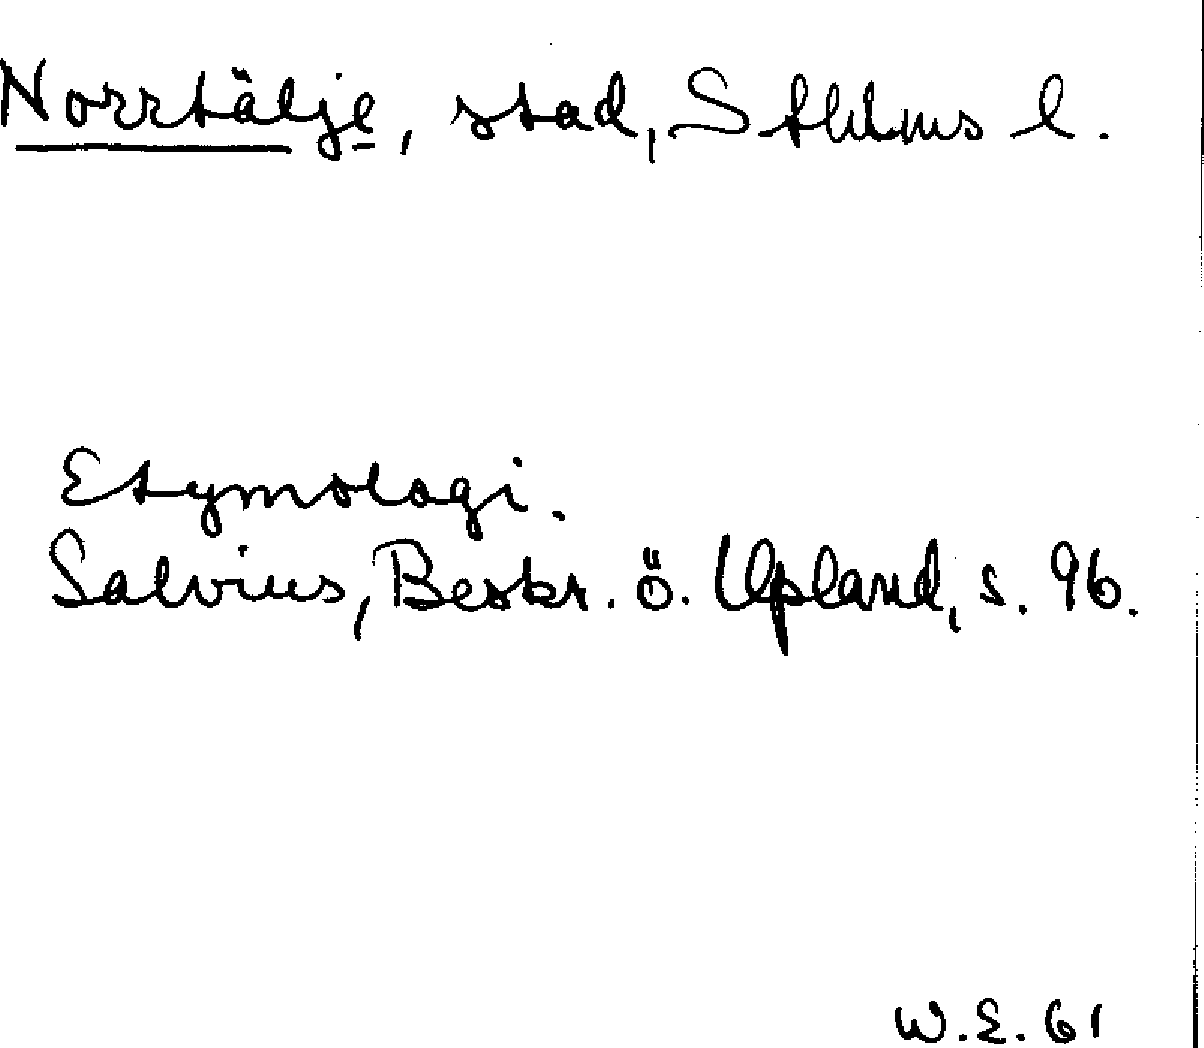 Norrtälje, stad, Sthlms l.
Etymologi.
Salvius, Beskr. ö. Upland, s. 96.
W.E. 61